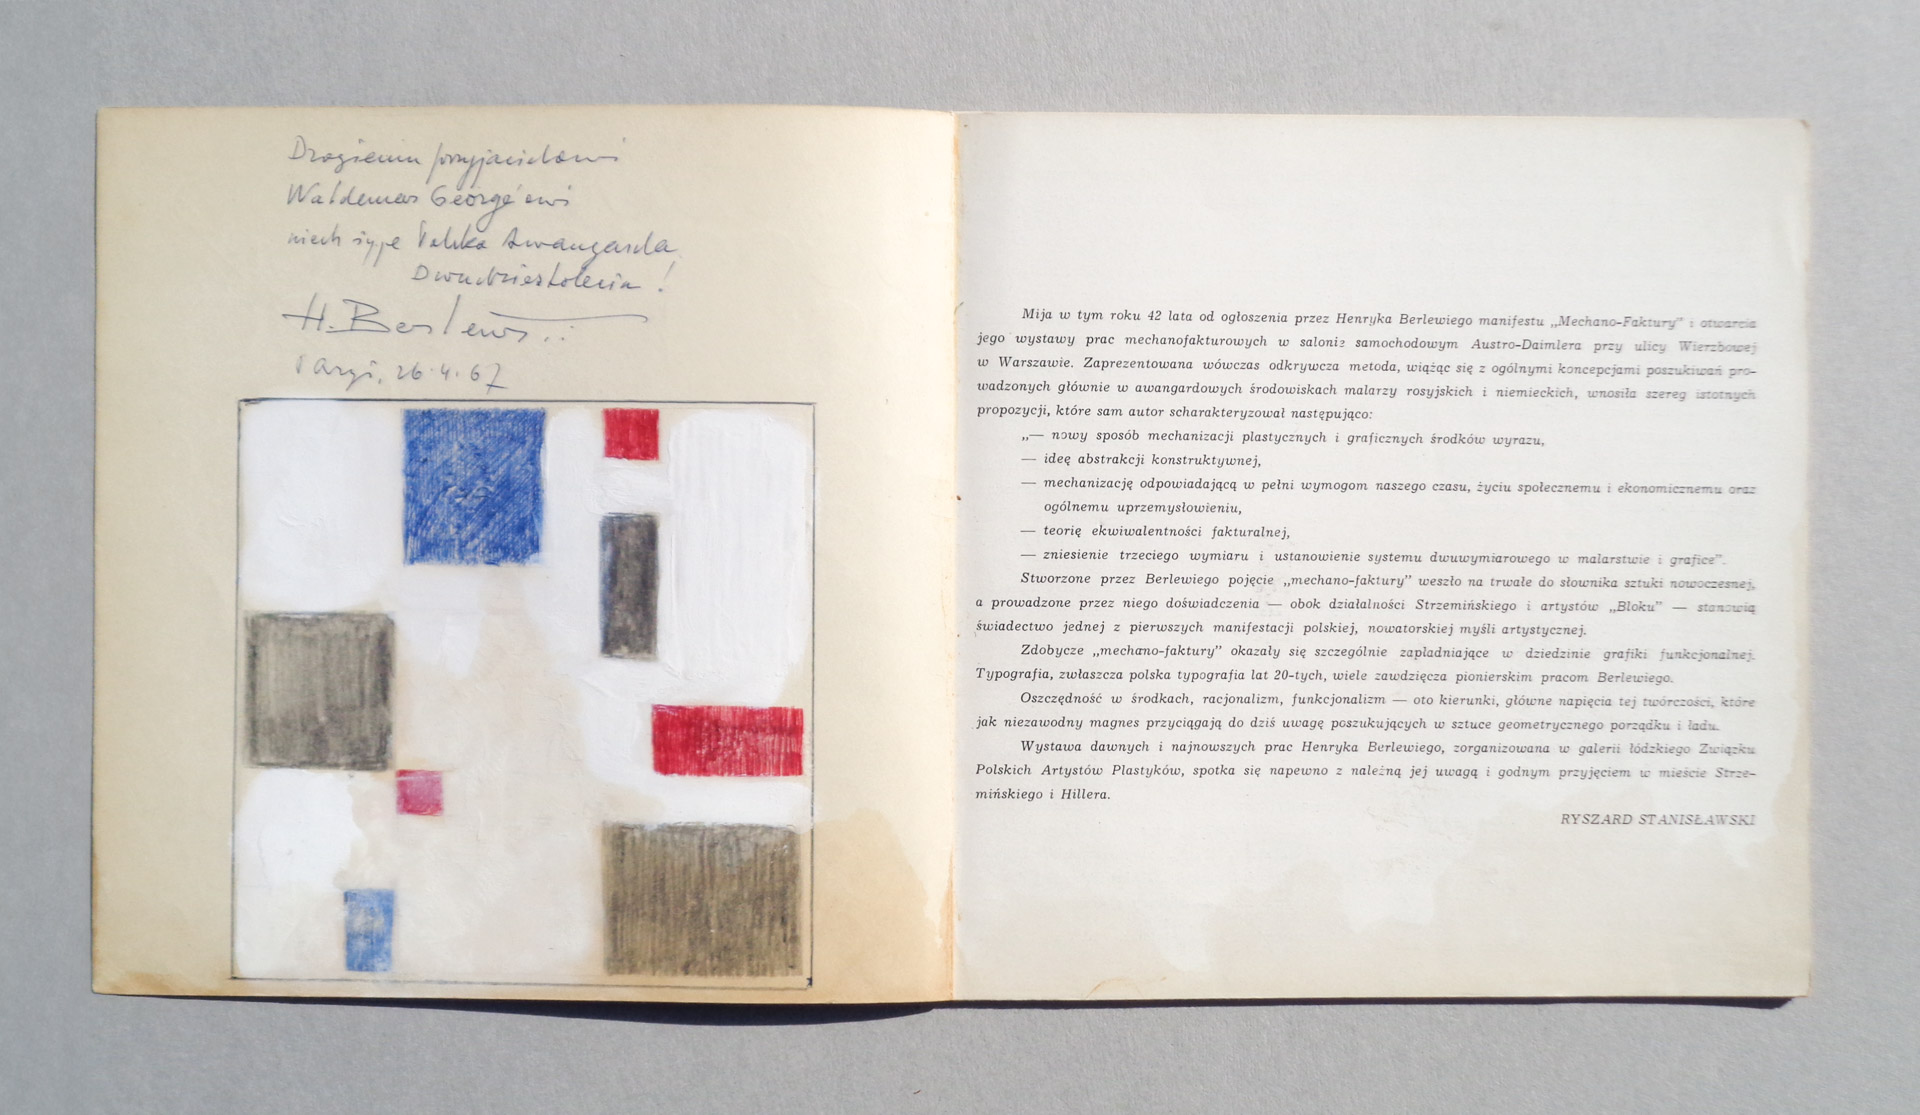 Drogiemu przyjacielowi
Waldemar George'owi
niech żyje Polska Awangarda
Dwudziestolecia!
H. Berlewi
Paryż, 26.4.67
Mija w tym roku 42 lata od ogłoszenia przez Henryka Berlewiego manifestu „Mechano-Faktury” i otwarcia
jego wystawy prac mechanofakturowych w salonie samochodowym Austro-Daimlera przy ulicy Wierzbowej
w Warszawie. Zaprezentowana wówczas odkrywcza metoda, wiążąc się z ogólnymi koncepcjami poszukiwań pro-
wadzonych głównie w awangardowych środowiskach malarzy rosyjskich i niemieckich, wnosiła szereg istotnych
propozycji, które sam autor scharakteryzował następująco:
„— nowy sposób mechanizacji plastycznych i graficznych środków wyrazu,
— ideę abstrakcji konstruktywnej,
— mechanizację odpowiadającą w pełni wymogom naszego czasu, życiu społecznemu i ekonomicznemu oraz
ogólnemu uprzemysłowieniu,
— teorię ekwiwalentności fakturalnej,
— zniesienie trzeciego wymiaru i ustanowienie systemu dwuwymiarowego w malarstwie i grafice”.
Stworzone przez Berlewiego pojęcie „mechano-faktury” weszło na trwałe do słownika sztuki nowoczesnej,
a prowadzone przez niego doświadczenia — obok działalności Strzemińskiego i artystów „Bloku” — stanowią
świadectwo jednej z pierwszych manifestacji polskiej, nowatorskiej myśli artystycznej.
Zdobycze „mechano-faktury” okazały się szczególnie zapladniające w dziedzinie grafiki funkcjonalnej.
Typografia, zwłaszcza polska typografia lat 20-tych, wiele zawdzięcza pionierskim pracom Berlewiego.
Oszczędność w środkach, racjonalizm, funkcjonalizm — oto kierunki, główne napięcia tej twórczości, które
jak niezawodny magnes przyciągają do dziś uwagę poszukujących w sztuce geometrycznego porządku i ładu.
Wystawa dawnych i najnowszych prac Henryka Berlewiego, zorganizowana w galerii łódzkiego Związku
Polskich Artystów Plastyków, spotka się napewno z należną jej uwagą i godnym przyjęciem w mieście Strze-
mińskiego i Hillera.
RYSZARD STANISŁAWSKI